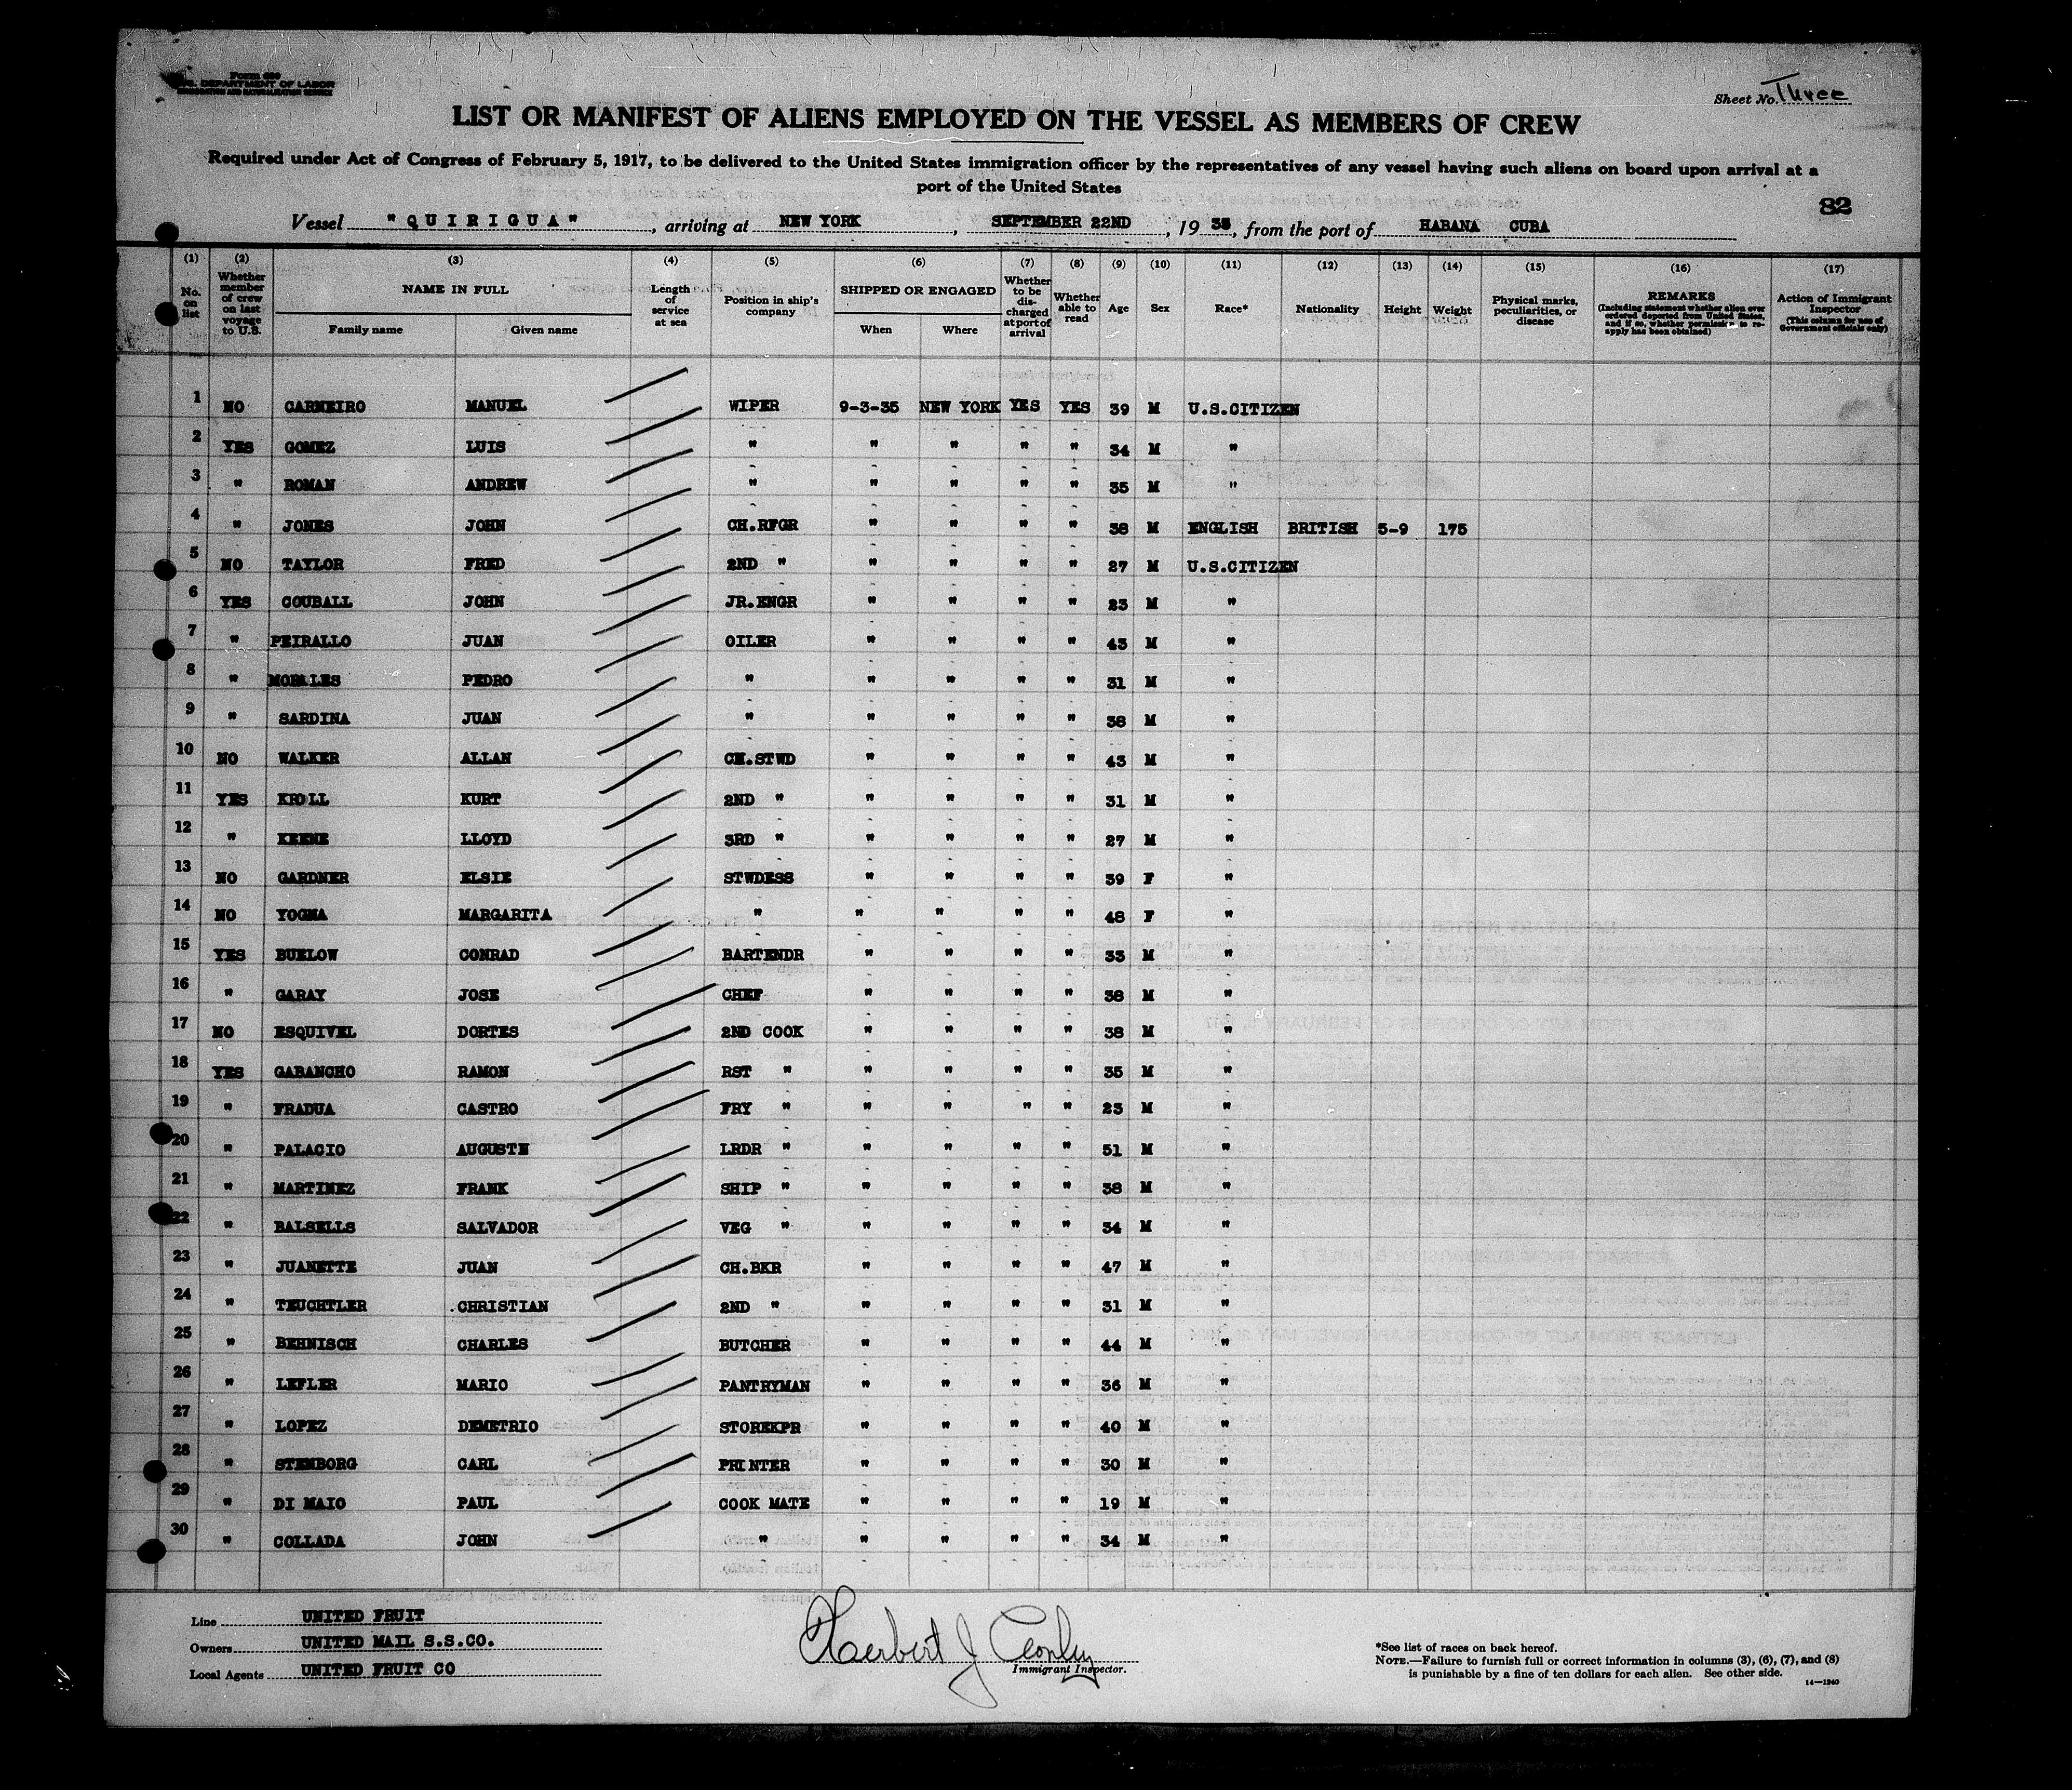 Form 689
U.S. DEPARTMENT OF LABOR
IMMIGRATION AND NATURALIZATION SERVICE
Sheet No. Three
LIST OR MANIFEST OF ALIENS EMPLOYED ON THE VESSEL AS MEMBERS OF CREW
Required under Act of Congress of February 5, 1917, to be delivered to the United States immigration officer by the representatives of any vessel having such aliens on board upon arrival at a
port of the United States
82
Vessel "QUIRIGUA", arriving at NEW YORK, SEPTEMBER 22ND, 1935, from the port of HABANA CUBA
(1) (2) (3) (4) (5) (6) (7) (8) (9) (10) (11) (12) (13) (14) (15) (16) (17)
No. on list
Whether member of crew on last voyage to U.S.
NAME IN FULL
Family name Given name
Length of service at sea
Position in ship's company
SHIPPED OR ENGAGED
When Where
Whether to be discharged at port of arrival
Whether able to read
Age Sex Race* Nationality Height Weight
Physical marks, peculiarities, or disease
REMARKS
(Including statement whether alien ever ordered deported from United States, and if so, whether permission to reapply has been obtained)
Action of Immigrant Inspector
(This column for use of Government officials only)
1 NO CARNEIRO MANUEL WIPER 9-3-35 NEW YORK YES YES 39 M U.S.CITIZEN
2 YES GOMEZ LUIS " " " " " 34 M "
3 " ROMAN ANDREW " " " " " 35 M "
4 " JONES JOHN CH.RFGR " " " " 38 M ENGLISH BRITISH 5-9 175
5 NO TAYLOR FRED 2ND " " " " " 27 M U.S.CITIZEN
6 YES COUBALL JOHN JR.ENGR " " " " 23 M "
7 " PEIRALLO JUAN OILER " " " " 43 M "
8 " MORALES PEDRO " " " " " 31 M "
9 " SARDINA JUAN " " " " " 38 M "
10 NO WALKER ALLAN CH.STWD " " " " 43 M "
11 YES KROLL KURT 2ND " " " " " 31 M "
12 " KEENE LLOYD 3RD " " " " " 27 M "
13 NO GARDNER ELSIE STWDESS " " " " 39 F "
14 NO YOGNA MARGARITA " " " " " 48 F "
15 YES BUELOW CONRAD BARTENDR " " " " 33 M "
16 " GARAY JOSE CHEF " " " " 38 M "
17 NO ESQUIVEL DORTES 2ND COOK " " " " 38 M "
18 YES GABANCHO RAMON RST " " " " " 35 M "
19 " FRADUA CASTRO FRY " " " " " 23 M "
20 " PALACIO AUGUSTE LRDR " " " " " 51 M "
21 " MARTINEZ FRANK SHIP " " " " " 38 M "
22 " BALSELLS SALVADOR VEG " " " " " 34 M "
23 " JUANETTE JUAN CH.BKR " " " " 47 M "
24 " TEUCHTLER CHRISTIAN 2ND " " " " " 31 M "
25 " BEHNISCH CHARLES BUTCHER " " " " 44 M "
26 " LEFLER MARIO PANTRYMAN " " " " 36 M "
27 " LOPEZ DEMETRIO STOREKPR " " " " 40 M "
28 " STENBORG CARL PRINTER " " " " 30 M "
29 " DI MAIO PAUL COOK MATE " " " " 19 M "
30 " COLLADA JOHN " " " " " 34 M "
Line UNITED FRUIT
Owners UNITED MAIL S.S.CO.
Local Agents UNITED FRUIT CO
Herbert J
Immigrant Inspector.
*See list of races on back hereof.
NOTE.—Failure to furnish full or correct information in columns (3), (6), (7), and (8)
is punishable by a fine of ten dollars for each alien. See other side.
14—1240